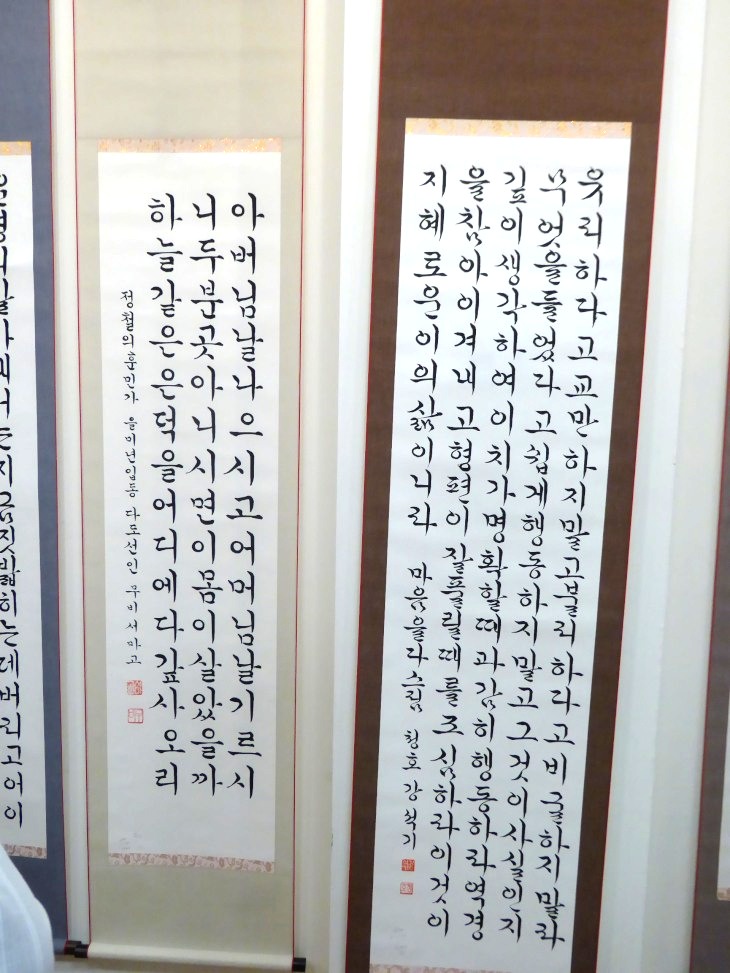 유리하다고교만하지말고불리하다고비굴하지말라
무엇을들었다고쉽게행동하지말고그것이사실인지
깊이생각하여이치가명확할때과감히행동하라역경
을참아이겨내고형편이잘풀릴때를조심하라이것이
지혜로운이의삶이니라
마음을다스림 청호 강석기
아버님날나으시고어머님날기르시
니두분곳아니시면이몸이살았을까
하늘같은은덕을어디에다갚사오리
정철의훈민가 을미년입동 다도선인 무비서마고